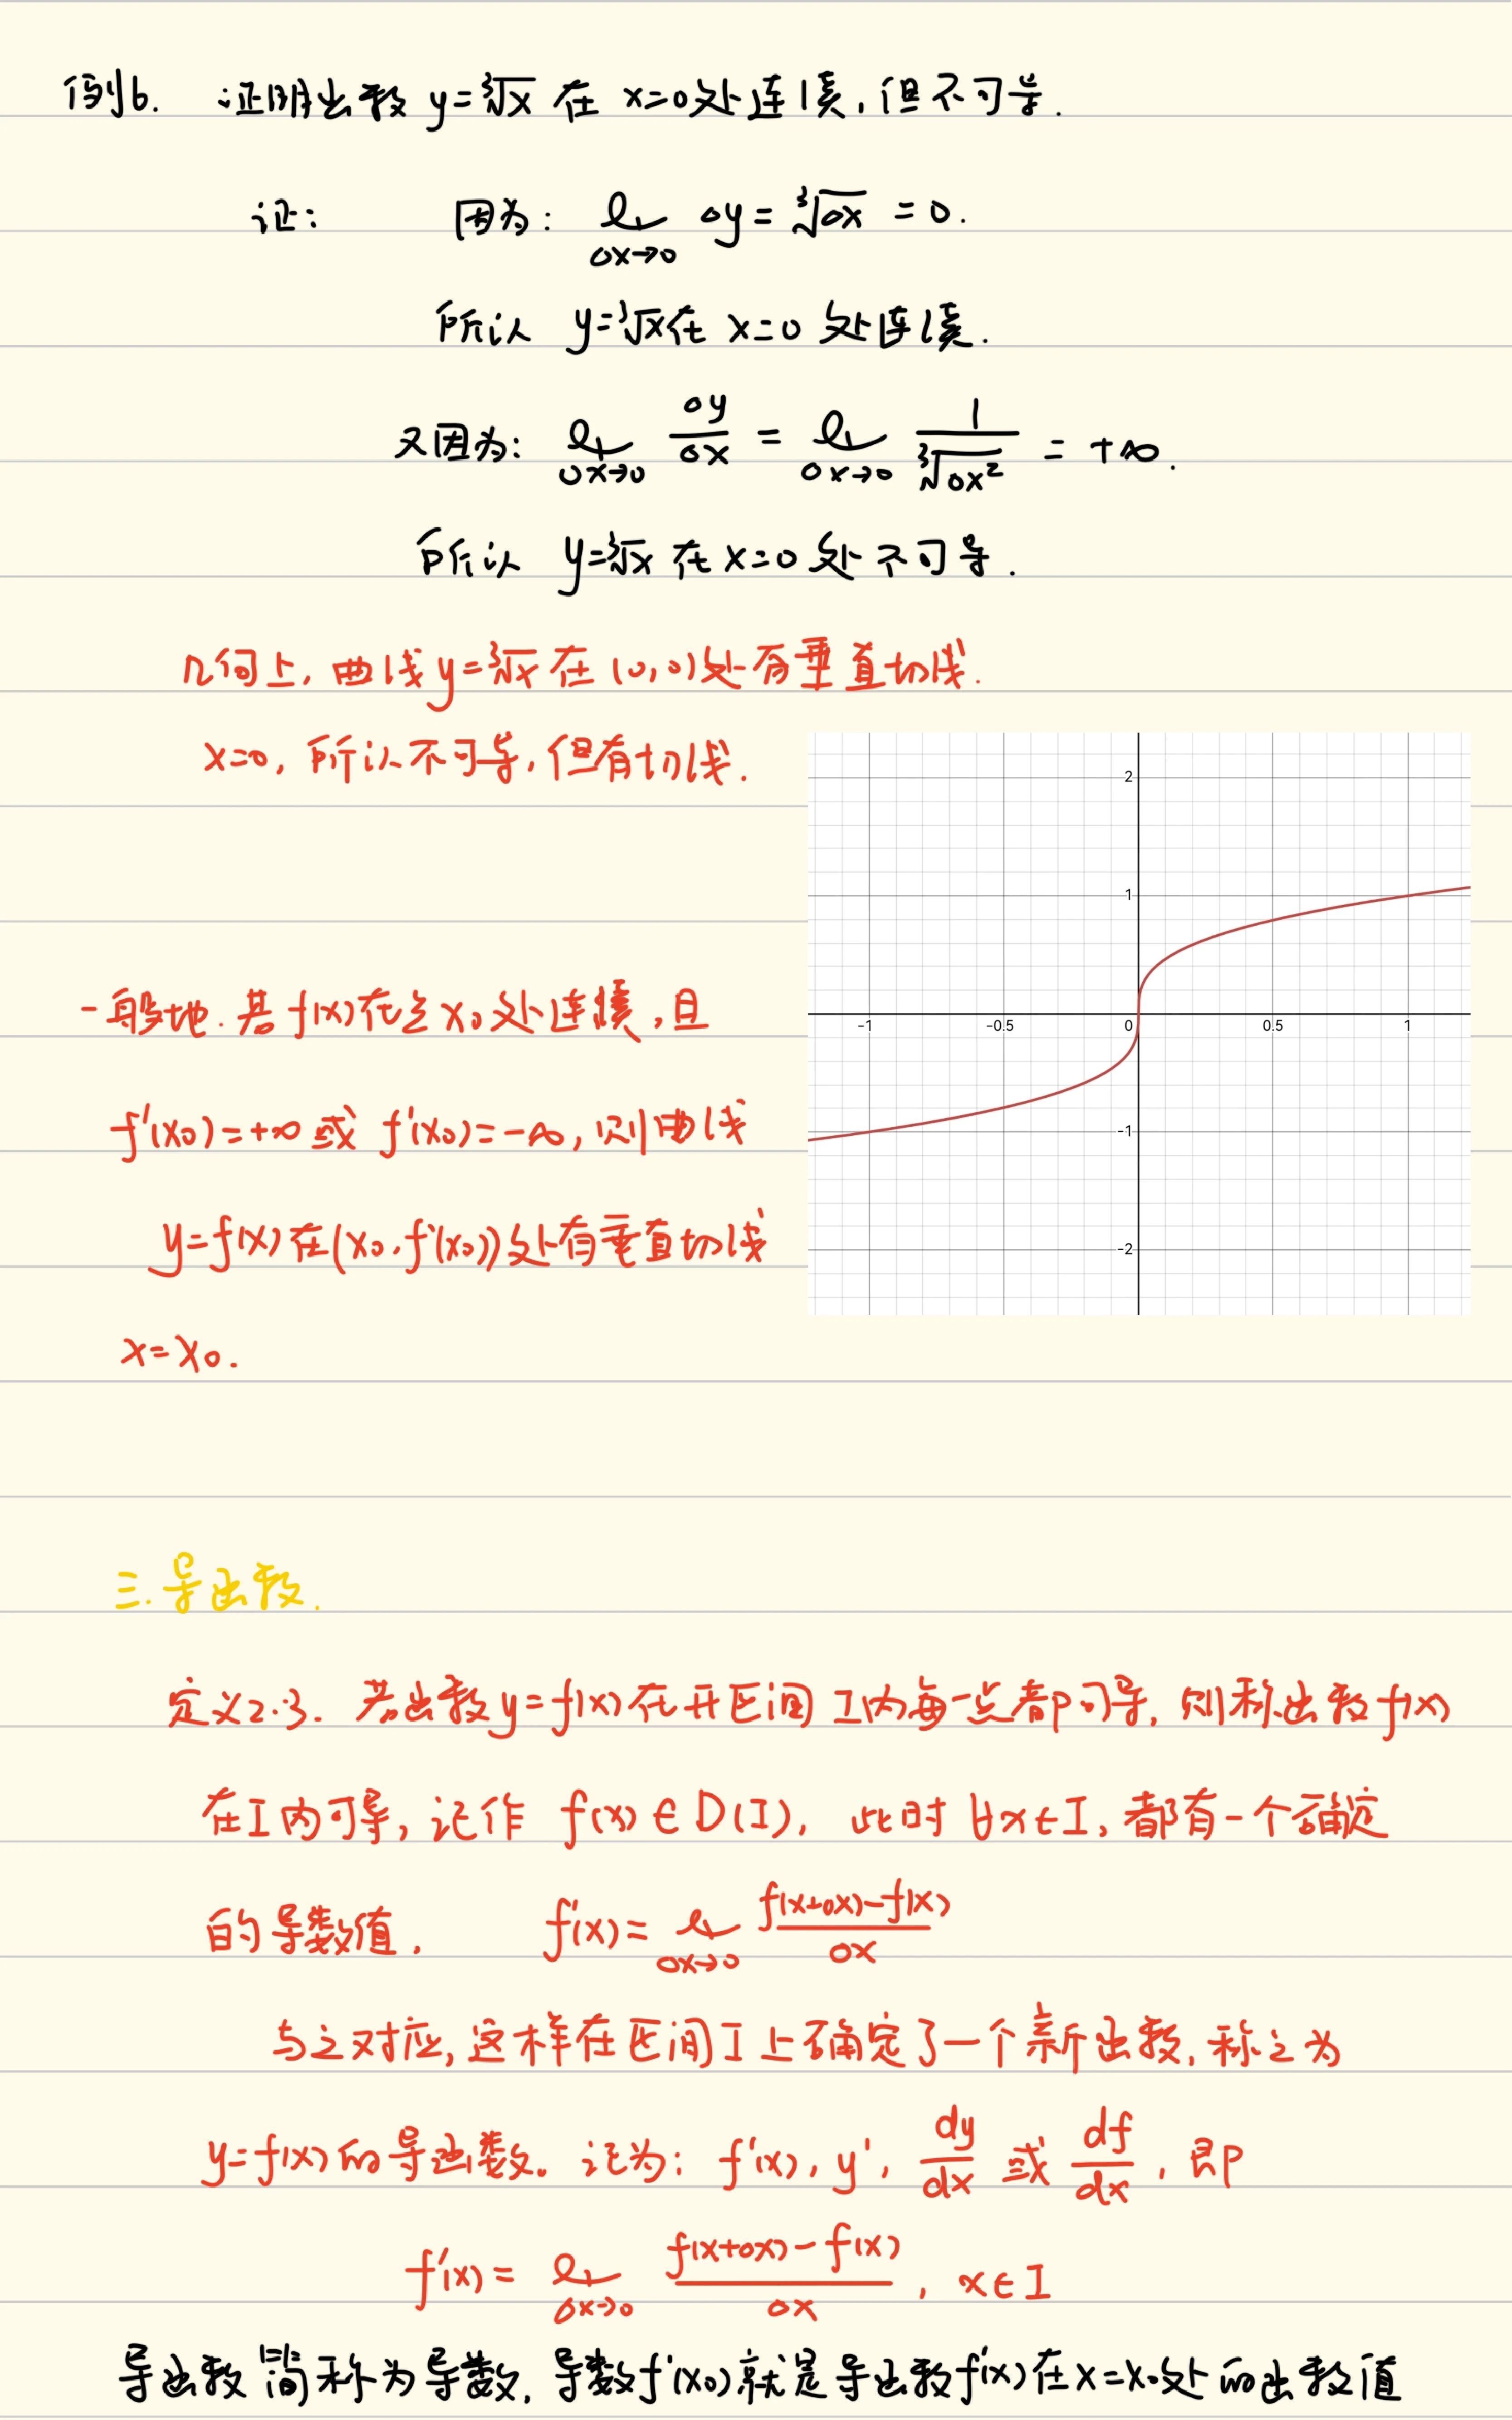 例6. 证明函数 y=∛x 在 x=0处连续,但不可导.
证: 因为: lim Δx→0 Δy = ∛Δx = 0.
所以 y=∛x在 x=0 处连续.
又因为: lim Δx→0 Δy/Δx = lim Δx→0 1/∛Δx² = +∞.
所以 y=∛x 在 x=0 处不可导.
几何上, 曲线 y=∛x 在 (0,0)处有垂直切线.
x=0, 所以不可导, 但有切线.
一般地. 若 f(x)在点 x₀ 处连续, 且
f'(x₀)=+∞ 或 f'(x₀)=-∞, 则曲线
y=f(x) 在(x₀, f(x₀))处有垂直切线
x=x₀.
2
1
-1 -0.5 0 0.5 1
-1
-2
三. 导函数.
定义2.3. 若函数 y=f(x) 在开区间 I内每一点都可导, 则称函数 f(x)
在I内可导, 记作 f(x)∈D(I), 此时 ∀x∈I, 都有一个确定
的导数值, f'(x)= lim Δx→0 f(x+Δx)-f(x)/Δx
与之对应, 这样在区间 I 上确定了一个新函数, 称之为
y=f(x) 的导函数。记为: f'(x), y', dy/dx 或 df/dx, 即
f'(x)= lim Δx→0 f(x+Δx)-f(x)/Δx, x∈I
导函数简称为导数, 导数f'(x₀)就是导函数f'(x)在x=x₀处的函数值